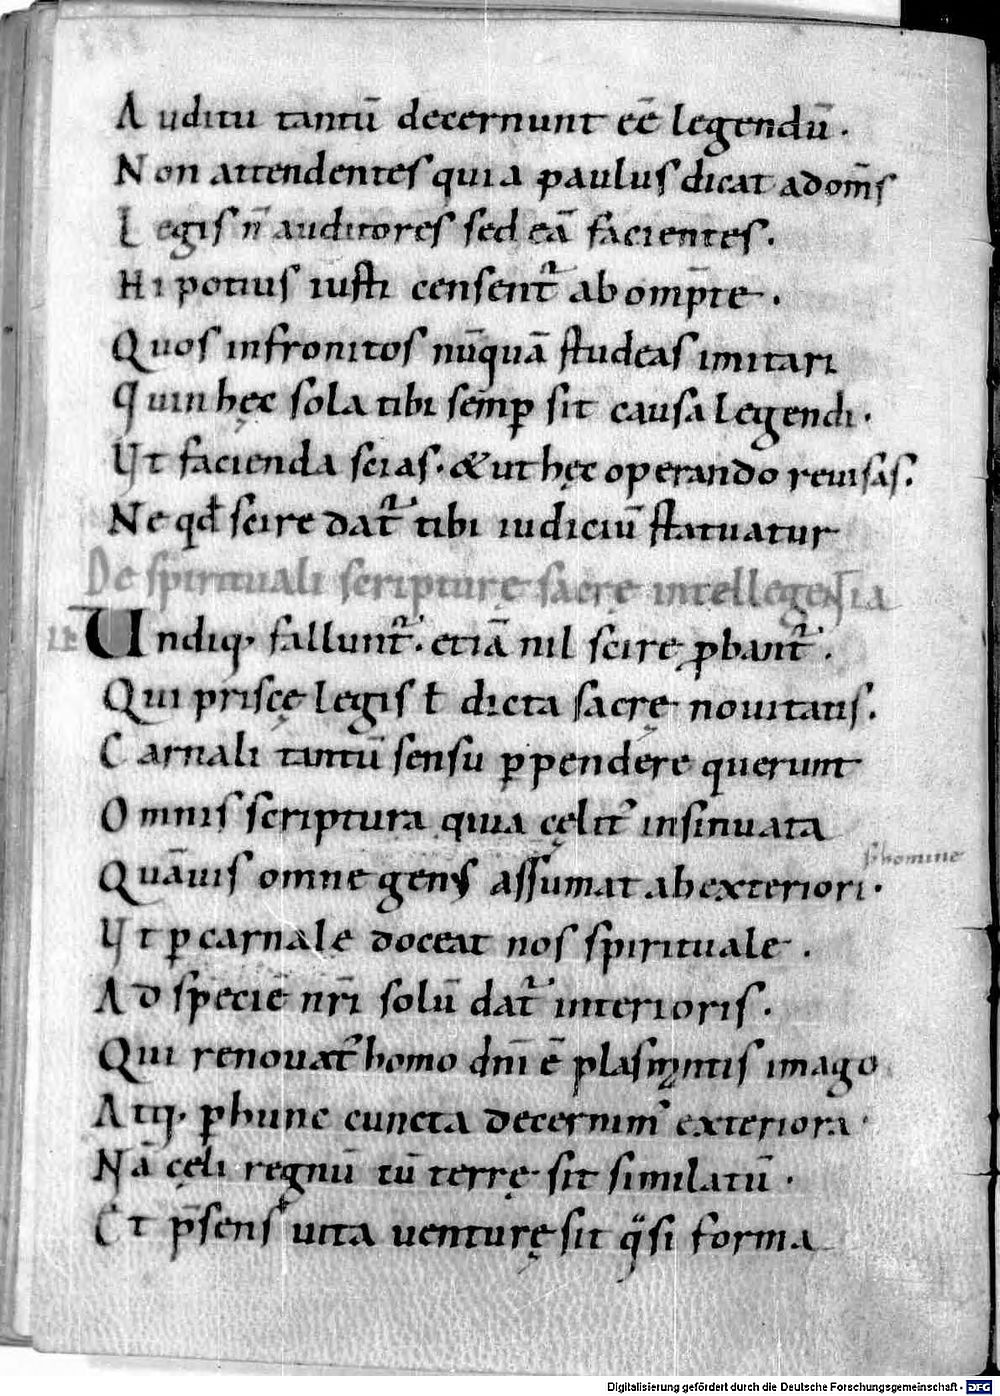 Auditu tantū decernunt eē legendū.
Non attendentes quia paulus dicat ad om̄s
Legis n̄ auditores sed eā facientes.
Hi potius iusti censent᷑ ab omp̄te.
Quos infronitos nūquā studeas imitari
Quin hęc sola tibi semp̲ sit causa legendi.
Vt facienda scias. & ut hęc operando reuisas.
Ne qd̄ scire dat᷑ tibi iudiciū statuatur
De spirituali scripturę sacrę intellegentia
Vndiq; fallunt᷑. etiā nil scire ꝓbant᷑.
Qui priscę legis ł dicta sacrę nouitatis.
Carnali tantū sensu ꝑpendere querunt
Omnis scriptura quia cęlit᷒ insinuata
s. homine
Quāuis omne genus assumat ab exteriori.
Vt ꝑ carnale doceat nos spirituale.
Ad speciē nr̄i solū dat᷑ interioris.
Qui renouat᷑ homo dn̄i ē plasmantis imago
Atq; ꝑ hunc cuncta decernim᷒ exteriora.
Nā cęli regnū tū terrę sit similatū.
Et p̄sens uita uenturę sit q̈si forma
Digitalisierung gefördert durch die Deutsche Forschungsgemeinschaft - DFG